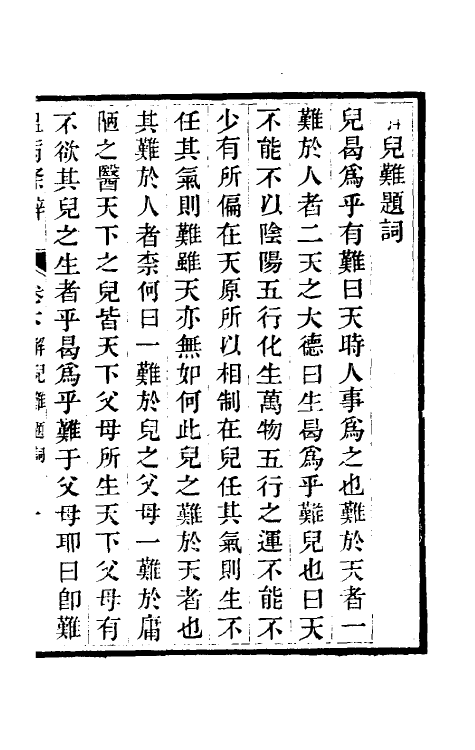 解兒難題詞
兒曷爲乎有難曰天時人事爲之也難於天者一
難於人者二天之大德曰生曷爲乎難兒也曰天
不能不以陰陽五行化生萬物五行之運不能不
少有所偏在天原所以相制在兒任其氣則生不
任其氣則難雖天亦無如何此兒之難於天者也
其難於人者柰何曰一難於兒之父母一難於庸
陋之醫天下之兒皆天下父母所生天下父母有
不欲其兒之生者乎曷爲乎難于父母耶曰卽難
卷六解兒難題詞 一